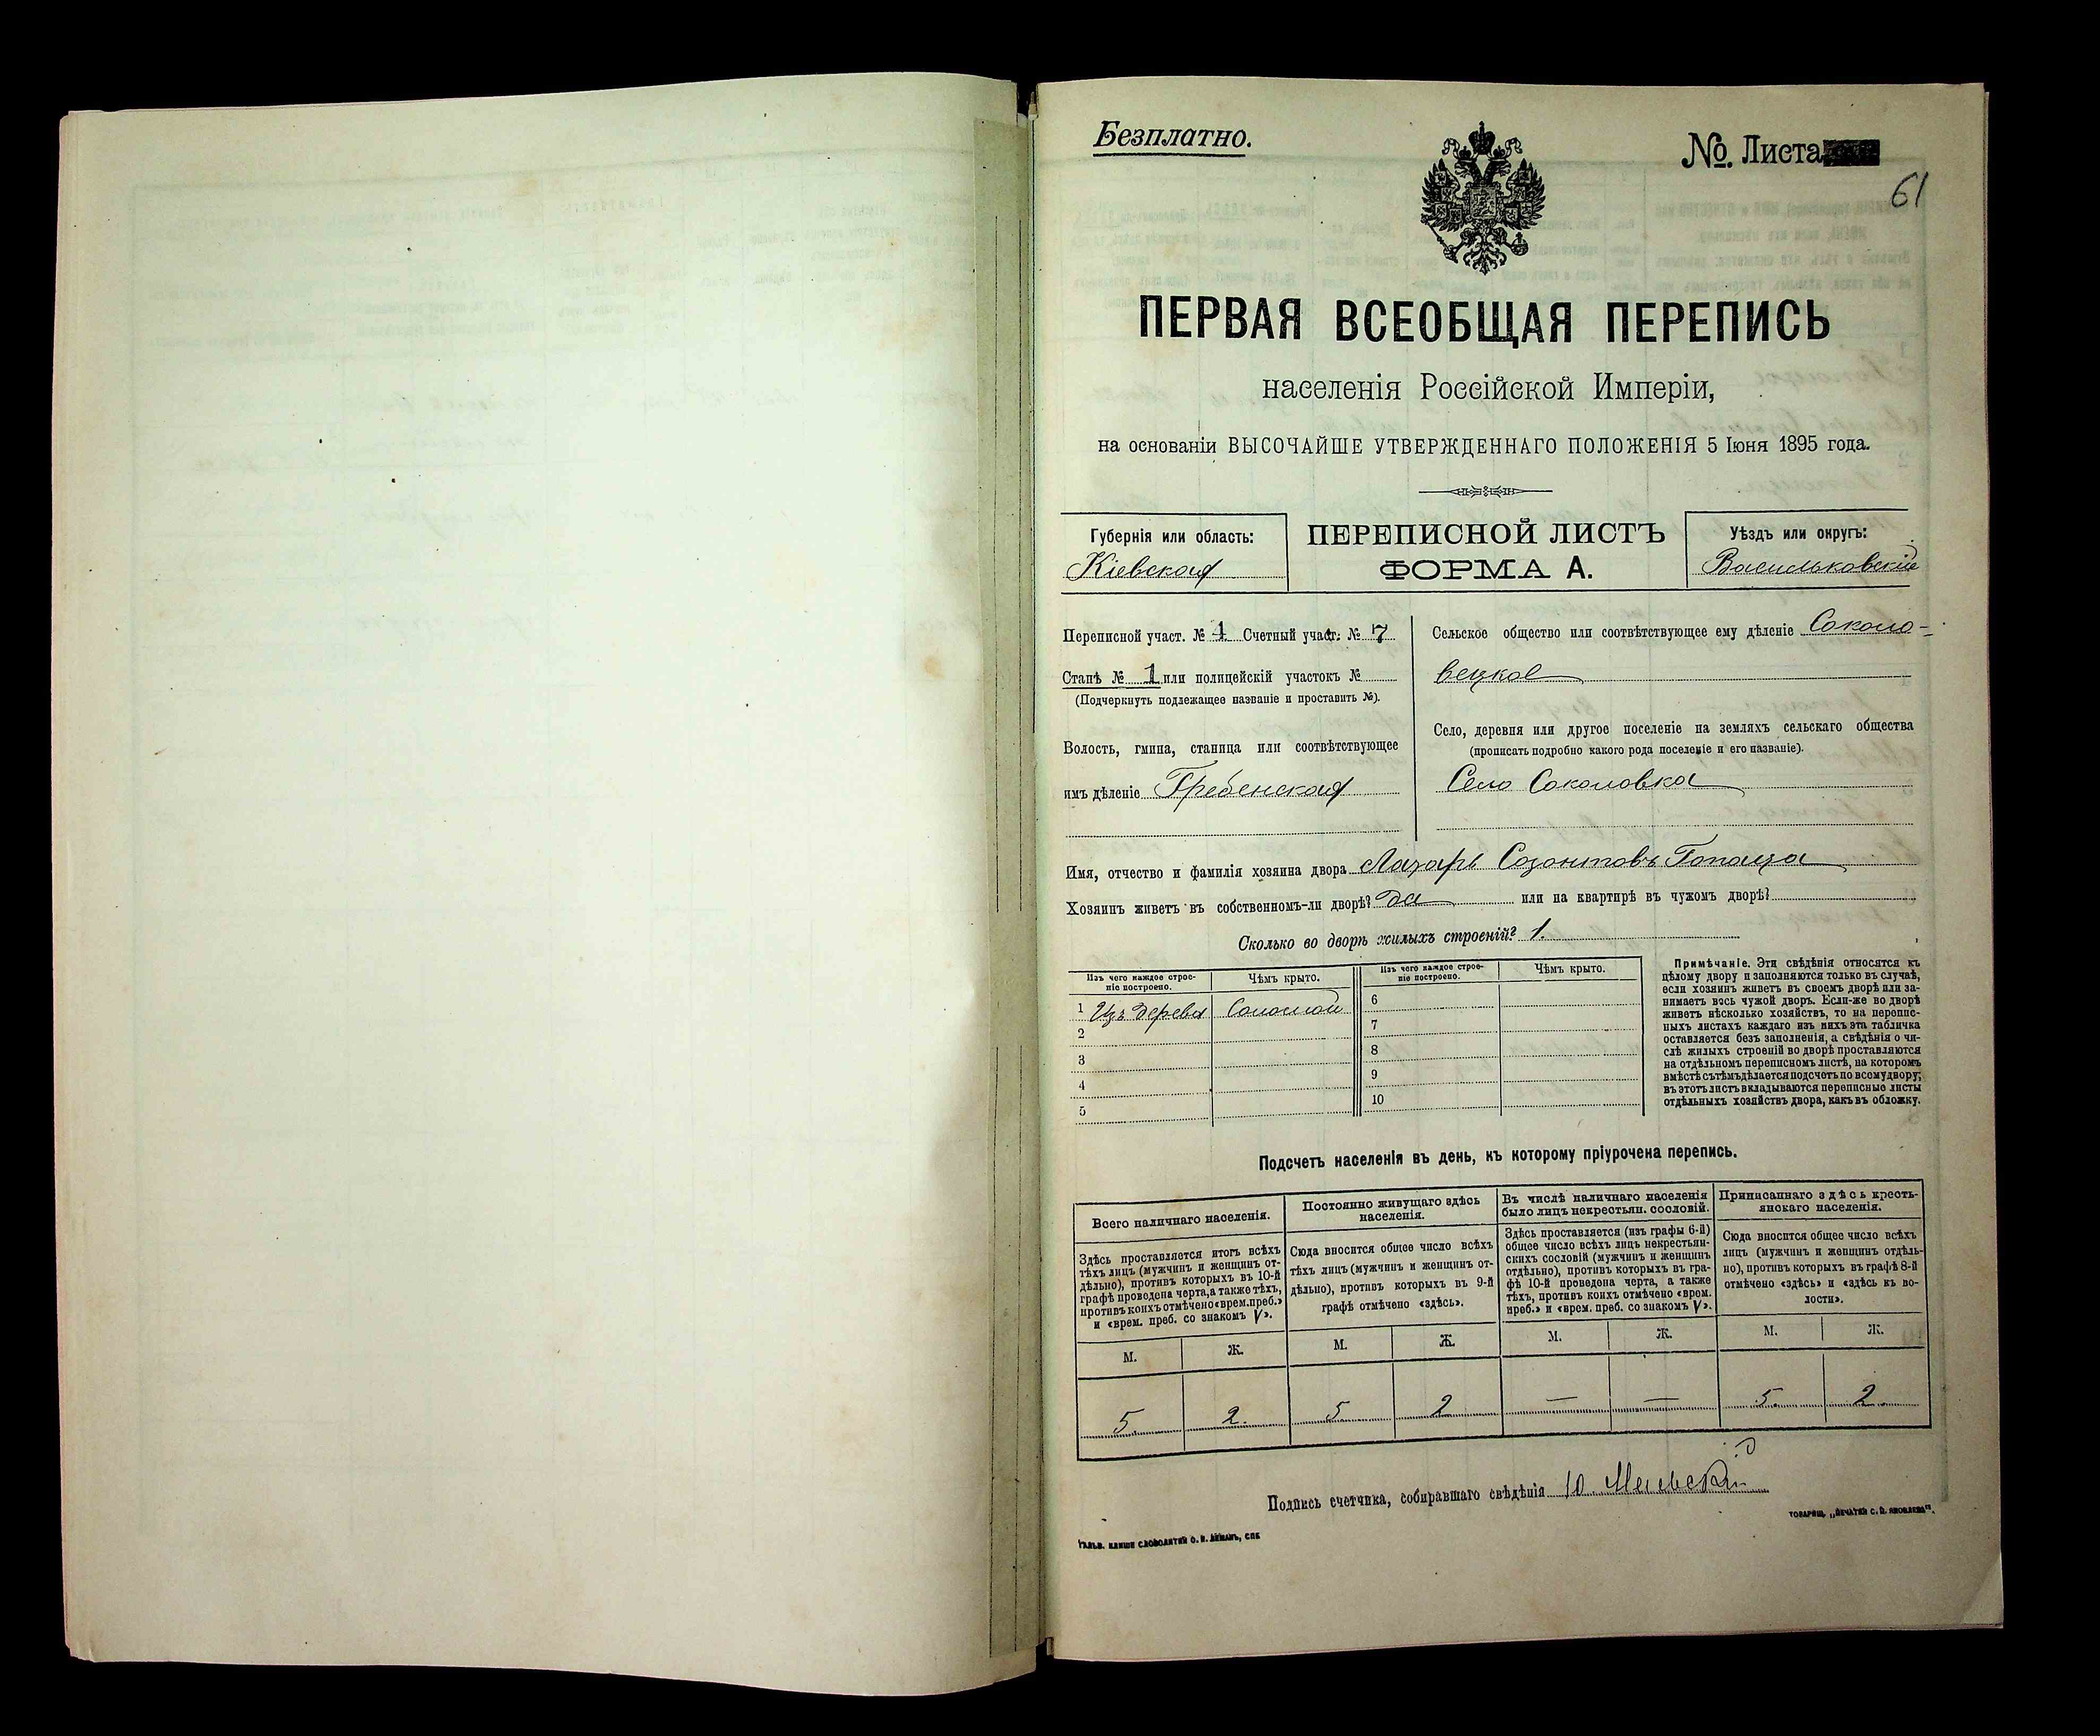 Безплатно.
№. Листа
61
ПЕРВАЯ ВСЕОБЩАЯ ПЕРЕПИСЬ
населенія Россійской Имперіи,
на основаніи ВЫСОЧАЙШЕ УТВЕРЖДЕННАГО ПОЛОЖЕНІЯ 5 Іюня 1895 года.
Губернія или область:
Кіевская
ПЕРЕПИСНОЙ ЛИСТЪ
ФОРМА А.
Уѣздъ или округъ:
Васильковскій
Переписной участ. № 1 Счетный участ. № 7
Станъ № 1 или полицейскій участокъ №
(Подчеркнуть подлежащее названіе и проставить №).
Волость, гмина, станица или соотвѣтствующее
имъ дѣленіе Гребенская
Сельское общество или соотвѣтствующее ему дѣленіе Соколо-
вецкое
Село, деревня или другое поселеніе на земляхъ сельскаго общества
(прописать подробно какого рода поселеніе и его названіе).
Село Соколовка
Имя, отчество и фамилія хозяина двора Лазарь Созонтовъ
Хозяинъ живетъ въ собственномъ-ли дворѣ? да или на квартирѣ въ чужомъ дворѣ?
Сколько во дворѣ жилыхъ строеній? 1.
Изъ чего каждое строе-
ніе построено.
Чѣмъ крыто.
1 Изъ дерева Соломой
2
3
4
5
Изъ чего каждое строе-
ніе построено.
Чѣмъ крыто.
6
7
8
9
10
Примѣчаніе. Эти свѣдѣнія относятся къ
цѣлому двору и заполняются только въ случаѣ,
если хозяинъ живетъ въ своемъ дворѣ или за-
нимаетъ весь чужой дворъ. Если-же во дворѣ
живетъ нѣсколько хозяйствъ, то на перепис-
ныхъ листахъ каждаго изъ нихъ эта табличка
оставляется безъ заполненія, а свѣдѣнія о чи-
слѣ жилыхъ строеній во дворѣ проставляются
на отдѣльномъ переписномъ листѣ, на которомъ
вмѣстѣ съ тѣмъ дѣлается подсчетъ по всему двору;
въ этотъ листъ вкладываются переписные листы
отдѣльныхъ хозяйствъ двора, какъ въ обложку.
Подсчетъ населенія въ день, къ которому пріурочена перепись.
Всего наличнаго населенія.
Здѣсь проставляется итогъ всѣхъ
тѣхъ лицъ (мужчинъ и женщинъ от-
дѣльно), противъ которыхъ въ 10-й
графѣ проведена черта, а также тѣхъ,
противъ коихъ отмѣчено «врем. преб.»
и «врем. преб. со знакомъ V».
М. Ж.
5. 2.
Постоянно живущаго здѣсь
населенія.
Сюда вносится общее число всѣхъ
тѣхъ лицъ (мужчинъ и женщинъ от-
дѣльно), противъ которыхъ въ 9-й
графѣ отмѣчено «здѣсь».
М. Ж.
5. 2
Въ числѣ наличнаго населенія
было лицъ некрестьян. сословій.
Здѣсь проставляется (изъ графы 6-й)
общее число всѣхъ лицъ некрестьян-
скихъ сословій (мужчинъ и женщинъ
отдѣльно), противъ которыхъ въ гра-
фѣ 10-й проведена черта, а также
тѣхъ, противъ коихъ отмѣчено «врем.
преб.» и «врем. преб. со знакомъ V».
М. Ж.
— —
Приписаннаго здѣсь кресть-
янскаго населенія.
Сюда вносится общее число всѣхъ
лицъ (мужчинъ и женщинъ отдѣль-
но), противъ которыхъ въ графѣ 8-й
отмѣчено «здѣсь» и «здѣсь къ во-
лости».
М. Ж.
5. 2.
Подпись счетчика, собиравшаго свѣдѣнія Ю.
ГАЛЬВ. КЛИШЕ СЛОВОЛИТНИ О. И. ЛЕМАНЪ, СПБ
ТОВАРИЩ. „ПЕЧАТНЯ С. П. ЯКОВЛЕВА".